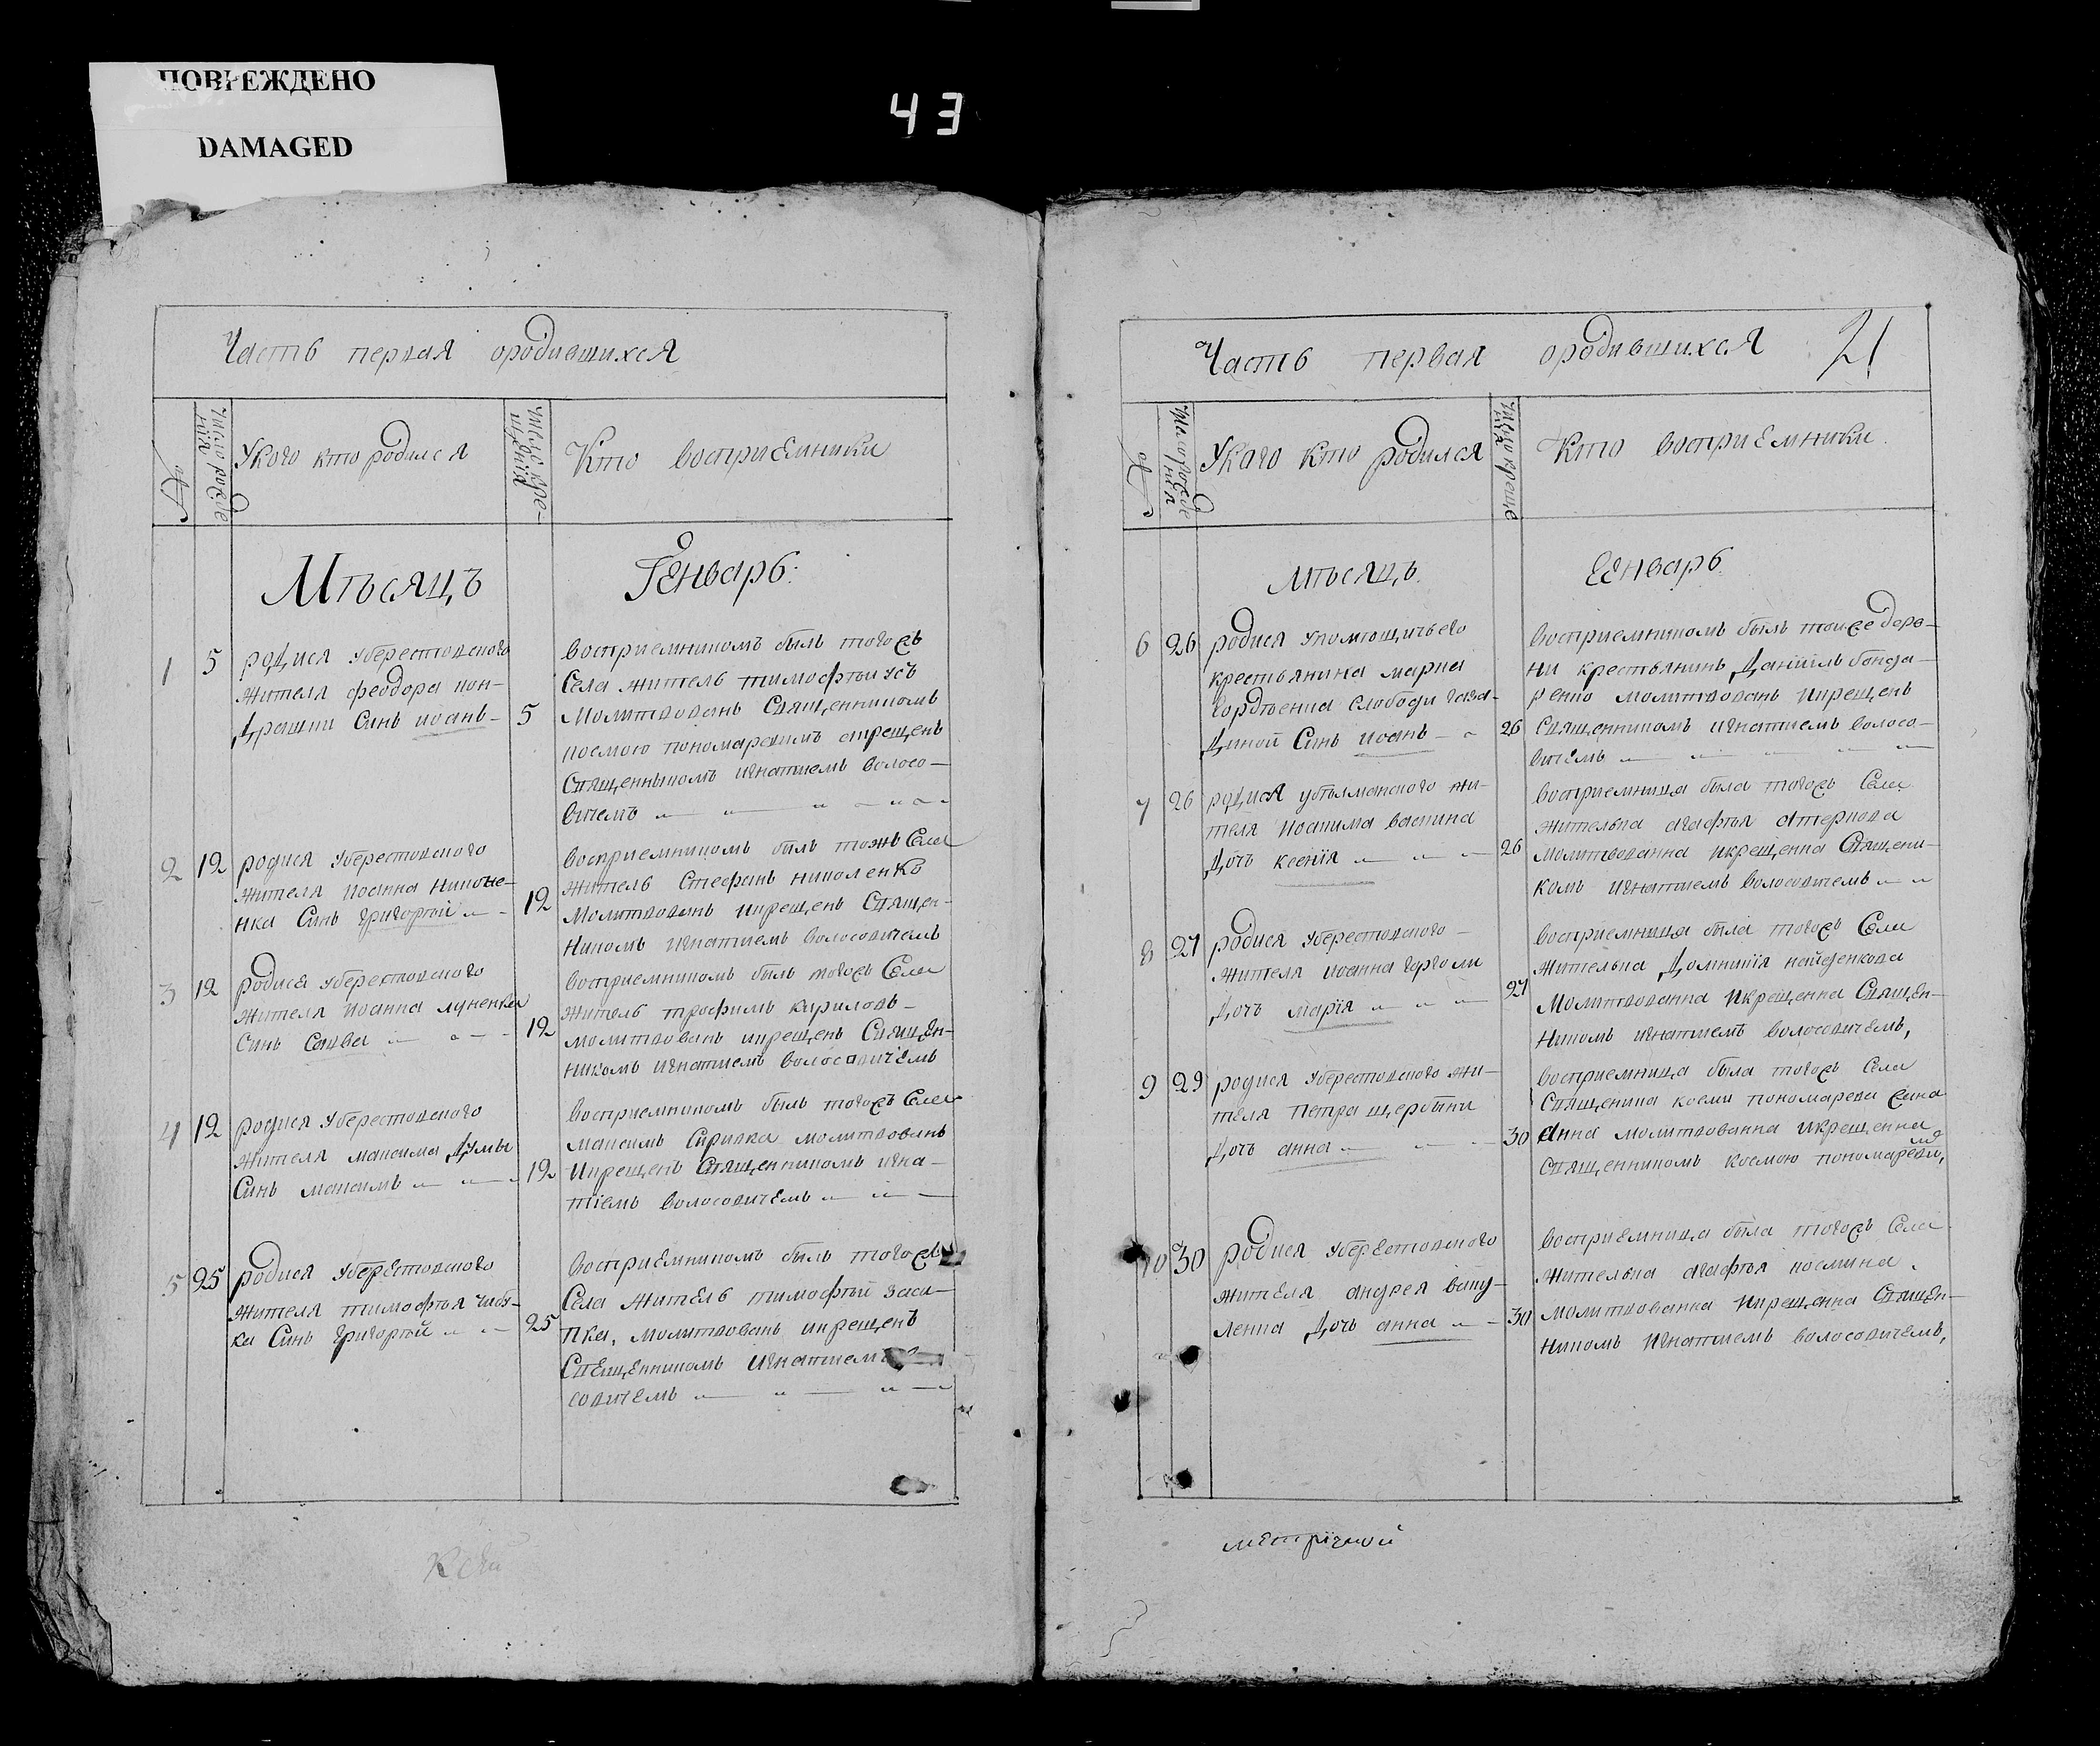 ПОВРЕЖДЕНО
DAMAGED
43
Часть первая ородившихся
№
Число рожде
нія
Укого кто родился
Число кре-
щенія
Кто восприемники
Мѣсяцъ
Генварь:
1
5
родися уберестовского
жителя феодора кон-
драшки Синъ иоанъ
5
восприемникомъ былъ тогожъ
Села житель тимофѣй усъ
Молитвованъ Священникомъ
космою пономаревимъ акрещенъ
Священныкомъ игнатиемъ волосо-
вичемъ
2
12
родися уберестовского
жителя иоанна никоне-
нка Синъ григорѣй
12
восприемникомъ былъ тожъ Села
житель Стефанъ николенко
Молитвованъ икрещенъ Священ-
никомъ игнатиемъ волосовичемъ
3
12
родися уберестовского
жителя иоанна луненка
Синъ Савва
12
восприемникомъ былъ тогожъ Села
житель трофимъ кириловъ
молитвованъ икрещенъ Священ-
никомъ игнатиемъ волосовичемъ
4
12
родися уберестовского
жителя максима думы
Синъ максимъ
12
восприемникомъ былъ тогожъ Села
максимъ Скрипка молитвованъ
Икрещенъ Священникомъ игна-
тіемъ волосовичемъ
5
25
родися уберестовского
жителя тимофѣя чиб-
ка Синъ григорѣй
25
восприемникомъ былъ тогожъ
Села житель тимофѣй заси-
пка, молитвованъ икрещенъ
Свещенникомъ игнатиемъ
совичемъ
Часть первая ородившихся
21
№
Число рожде
нія
Укаго кто родился
Число креще
нія
Кто восприемники
мѣсяцъ
Генварь
6
26
родися упомещичьего
крестьянина марка
гордѣенка слободи
Синъ иоанъ
26
восприемникомъ былъ тоиже дере-
ни крестьянинъ Даніилъ бонда-
ренко молитвованъ икрещенъ
Священникомъ игнатиемъ волосо-
вичемъ
7
26
родися жи-
теля иоакима васкина
дочъ ксенія
26
восприемница была тогожъ Села
жителька агафія
молитвованна икрещенна Священи-
комъ игнатиемъ волосовичемъ
8
27
родися уберестовского
жителя иоанна горголи
дочъ марія
27
восприемница была тогожъ Села
жителька Домникія найденкова
молитвованна икрещенна Священ-
никомъ игнатиемъ волосовичемъ,
9
29
родися уберестовского жи-
теля петра щербини
дочъ анна
30
восприемница была тогожъ Села
Священика косми пономарева жина
Анна молитвованна икрещенна
Священникомъ космою пономаревимъ,
10
30
родися уберестовского
жителя андрея ваку-
ленка дочъ анна
30
восприемница была тогожъ Села
жителька агафія космина
молитвованна икрещенна Священ-
никомъ игнатиемъ волосовичемъ,
метрічной